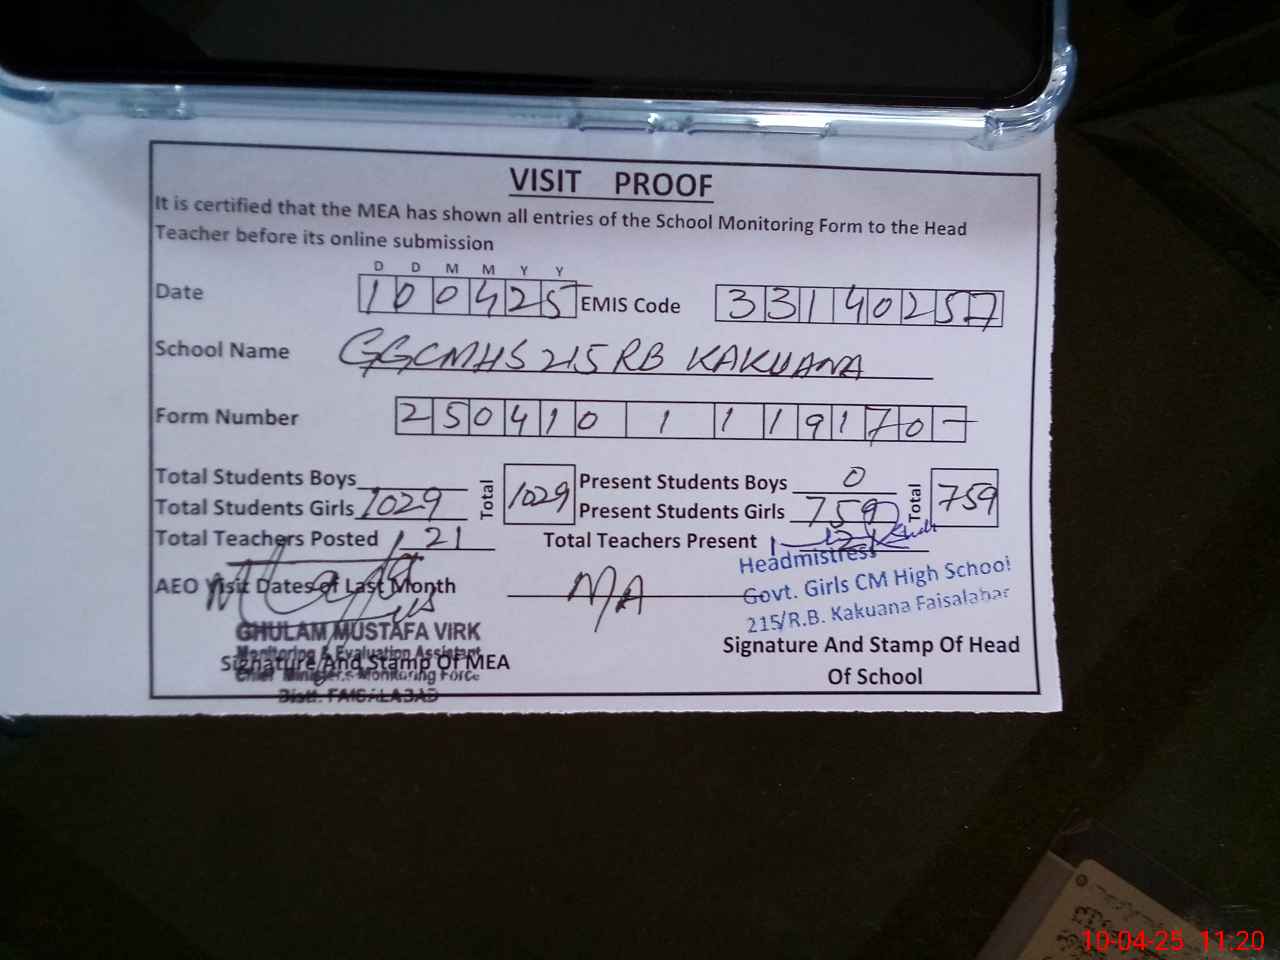 VISIT PROOF
It is certified that the MEA has shown all entries of the School Monitoring Form to the Head
Teacher before its online submission
D D M M Y Y
Date 100425 EMIS Code 33140257
School Name GGCMHS 215 RB KAKUANA
Form Number 250410 1 1 19170-
Total Students Boys Total 1029 Present Students Boys 0 Total 759
Total Students Girls 1029 Present Students Girls 759
Total Teachers Posted 21 Total Teachers Present
AEO Visit Dates of Last Month
Headmistress
Govt. Girls CM High School
215/R.B. Kakuana Faisalabad
GHULAM MUSTAFA VIRK
Monitoring & Evaluation Assistant
Chief Minister's Monitoring Force
Distt. FAISALABAD
Signature And Stamp Of MEA
Signature And Stamp Of Head
Of School
10-04-25 11:20